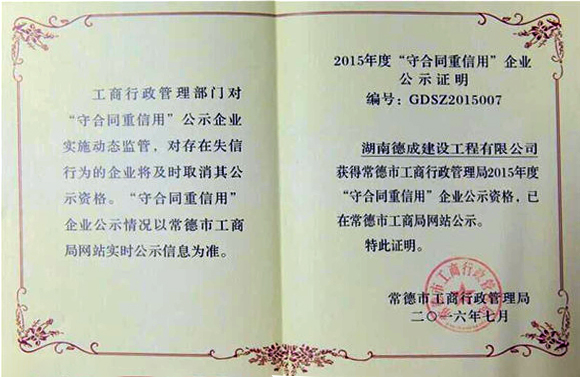 工商行政管理部门对
“守合同重信用”公示企业
实施动态监管，对存在失信
行为的企业将及时取消其公
示资格。“守合同重信用”
企业公示情况以常德市工商
局网站实时公示信息为准。
2015年度“守合同重信用”企业
公示证明
编号：GDSZ2015007
湖南德成建设工程有限公司
获得常德市工商行政管理局2015年度
“守合同重信用”企业公示资格，已
在常德市工商局网站公示。
特此证明。
常德市工商行政管理局
二〇一六年七月
常德市工商行政管理局